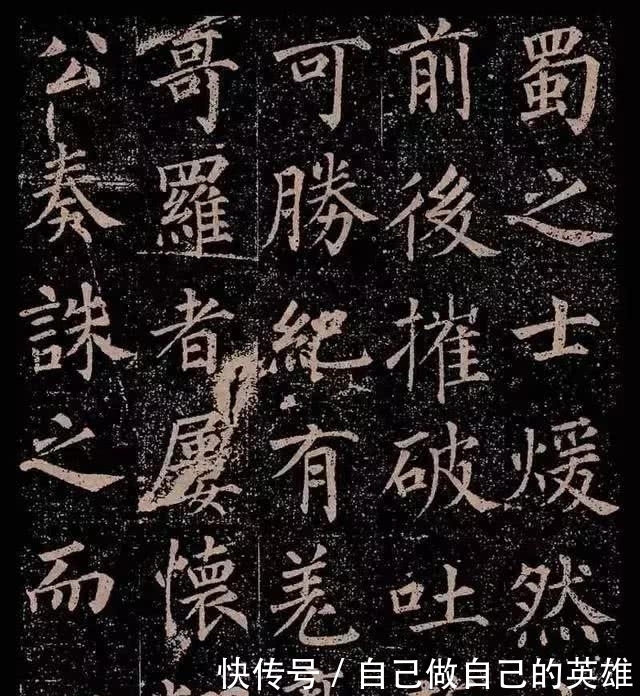 蜀之士煖然
前後摧破吐
可勝紀有羌
哥羅者屢懷
公奏誅之而
快传号 / 自己做自己的英雄